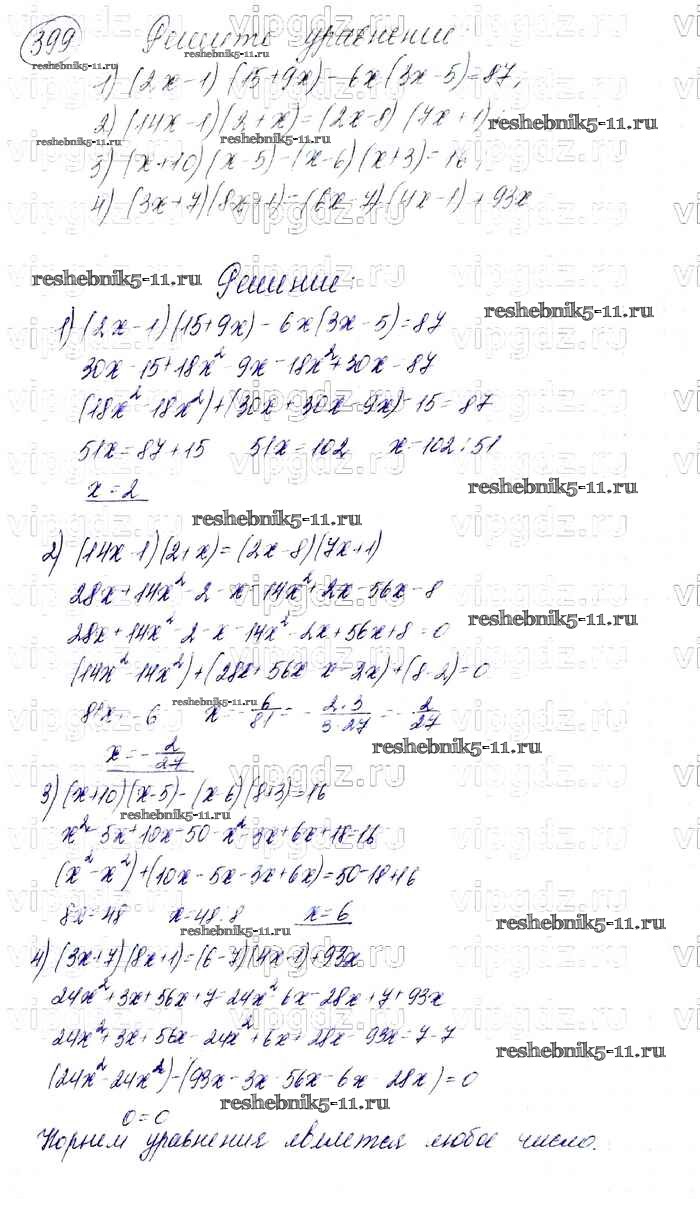 399 Решите уравнение:
1) (2x-1)(15+9x)-6x(3x-5)=87;
2) (14x-1)(2+x)=(2x-8)(7x+1);
3) (x+10)(x-5)-(x-6)(x+3)=16;
4) (3x+7)(8x+1)=(6x-7)(4x-1)+93x
Решение:
1) (2x-1)(15+9x)-6x(3x-5)=87
30x-15+18x²-9x-18x²+30x=87
(18x²-18x²)+(30x+30x-9x)-15=87
51x=87+15 51x=102 x=102:51
x=2
2) (14x-1)(2+x)=(2x-8)(7x+1)
28x+14x²-2-x=14x²+2x-56x-8
28x+14x²-2-x-14x²-2x+56x+8=0
(14x²-14x²)+(28x+56x-x-2x)+(8-2)=0
81x=-6 x=-6/81=-2·3/3·27=-2/27
x=-2/27
3) (x+10)(x-5)-(x-6)(8+3)=16
x²-5x+10x-50-x²-3x+6x+18=16
(x²-x²)+(10x-5x-3x+6x)=50-18+16
8x=48 x=48:8 x=6
4) (3x+7)(8x+1)=(6-7)(4x-1)+93x
24x²+3x+56x+7=24x²-6x-28x+7+93x
24x²+3x+56x-24x²+6x+28x-93x=7-7
(24x²-24x²)-(93x-3x-56x-6x-28x)=0
0=0
Корнем уравнения является любое число.
reshebnik5-11.ru
vipgdz.ru